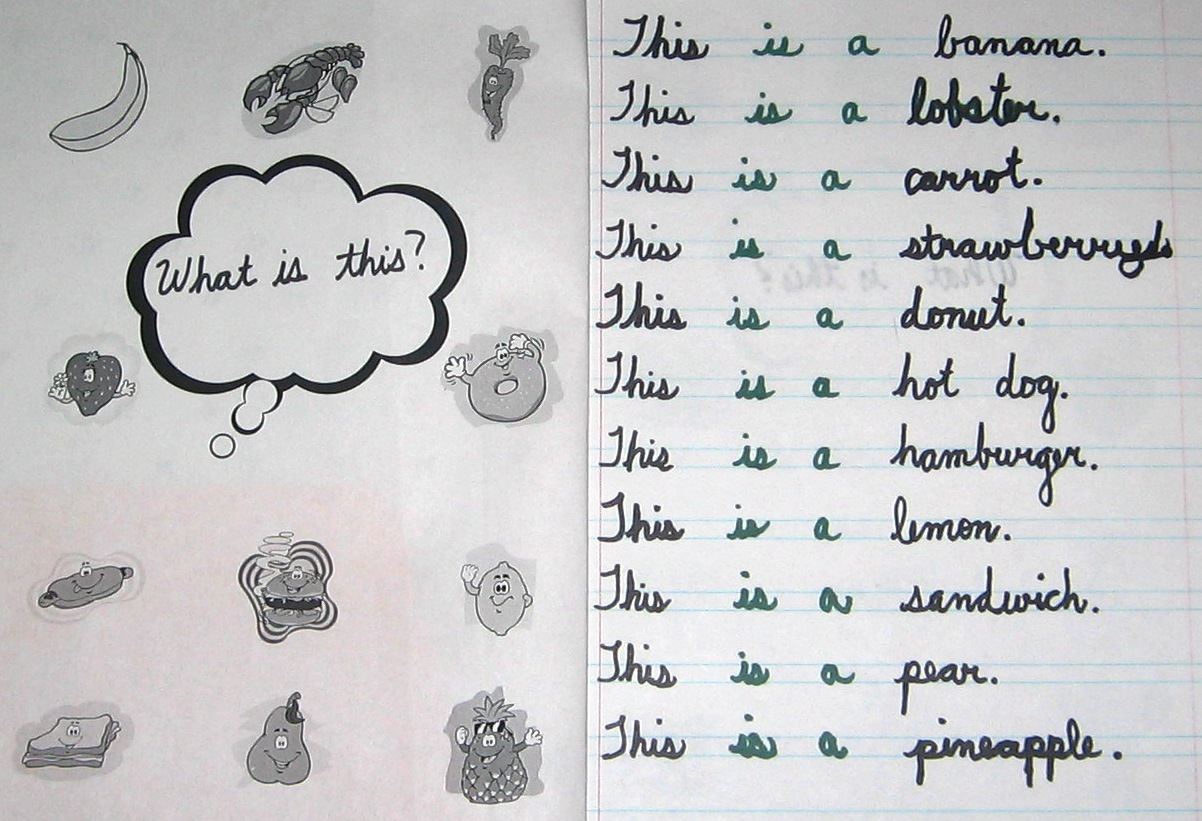 What is this?
This is a banana.
This is a lobster.
This is a carrot.
This is a
This is a donut.
This is a hot dog.
This is a hamburger.
This is a lemon.
This is a sandwich.
This is a pear.
This is a pineapple.